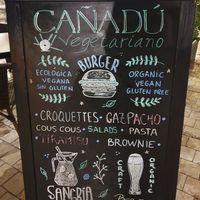 CAÑADÚ
Vegetariano
BURGER
ECOLÓGICA
VEGANA
SIN GLUTEN
ORGANIC
VEGAN
GLUTEN FREE
CROQUETTES • GAZPACHO
COUS COUS • SALADS • PASTA
TIRAMISU • BROWNIE
SANGRIA
CRAFT
ORGANIC